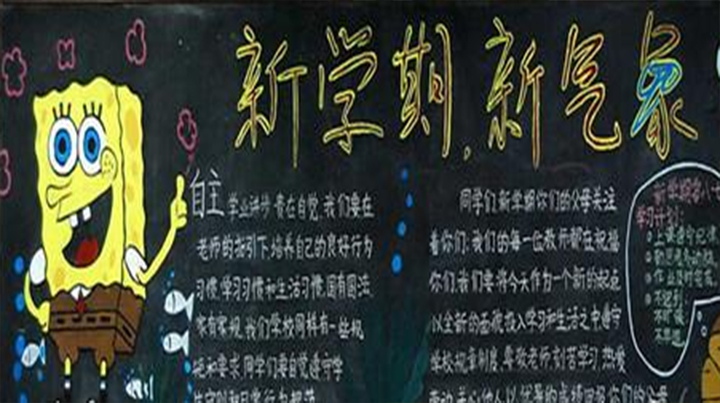 新学期,新气象
自主 学业进步贵在自觉,我们要在
老师的指引下,培养自己的良好行为
习惯,学习习惯和生活习惯,国有国法,
家有家规,我们学校同样有一些规
范和要求,同学们要自觉遵守学
同学们,新学期你们的父母关注
着你们;我们的每一位教师都在祝福
你们,我们要将今天作为一个新的起点
以全新的面貌投入学习和生活之中,遵守
学校规章制度,尊敬老师,刻苦学习,热爱
学习计划:
上课遵守纪律
不迟到